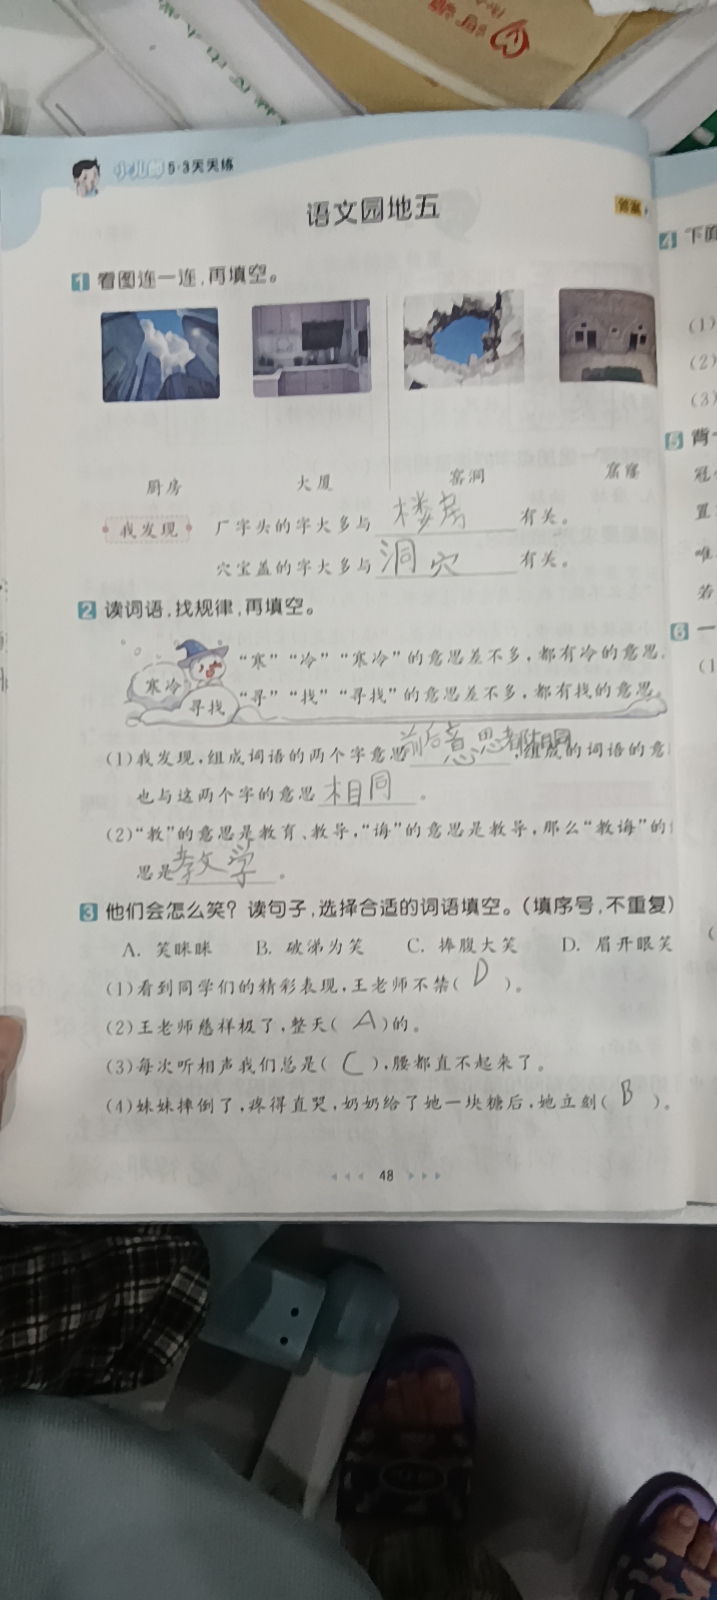 小儿郎 5·3天天练
语文园地五
答案
1 看图连一连，再填空。
厨房 大厦 窑洞 窟窿
我发现 厂字头的字大多与 楼房 有关。
穴宝盖的字大多与 洞穴 有关。
2 读词语，找规律，再填空。
寒冷 “寒”“冷”“寒冷”的意思差不多，都有冷的意思。
寻找 “寻”“找”“寻找”的意思差不多，都有找的意思。
(1)我发现，组成词语的两个字意思 前后意思都相同，组成的词语的意
也与这两个字的意思 相同 。
(2)“教”的意思是教育、教导，“诲”的意思是教导，那么“教诲”的
思是 教学 。
3 他们会怎么笑？读句子，选择合适的词语填空。（填序号，不重复）
A. 笑眯眯 B. 破涕为笑 C. 捧腹大笑 D. 眉开眼笑
(1)看到同学们的精彩表现，王老师不禁( D )。
(2)王老师慈祥极了，整天( A )的。
(3)每次听相声我们总是( C )，腰都直不起来了。
(4)妹妹摔倒了，疼得直哭，奶奶给了她一块糖后，她立刻( B )。
48
4 下面
(1)
(2)
(3)
5 背
冠
置
唯
若
6 一
(1